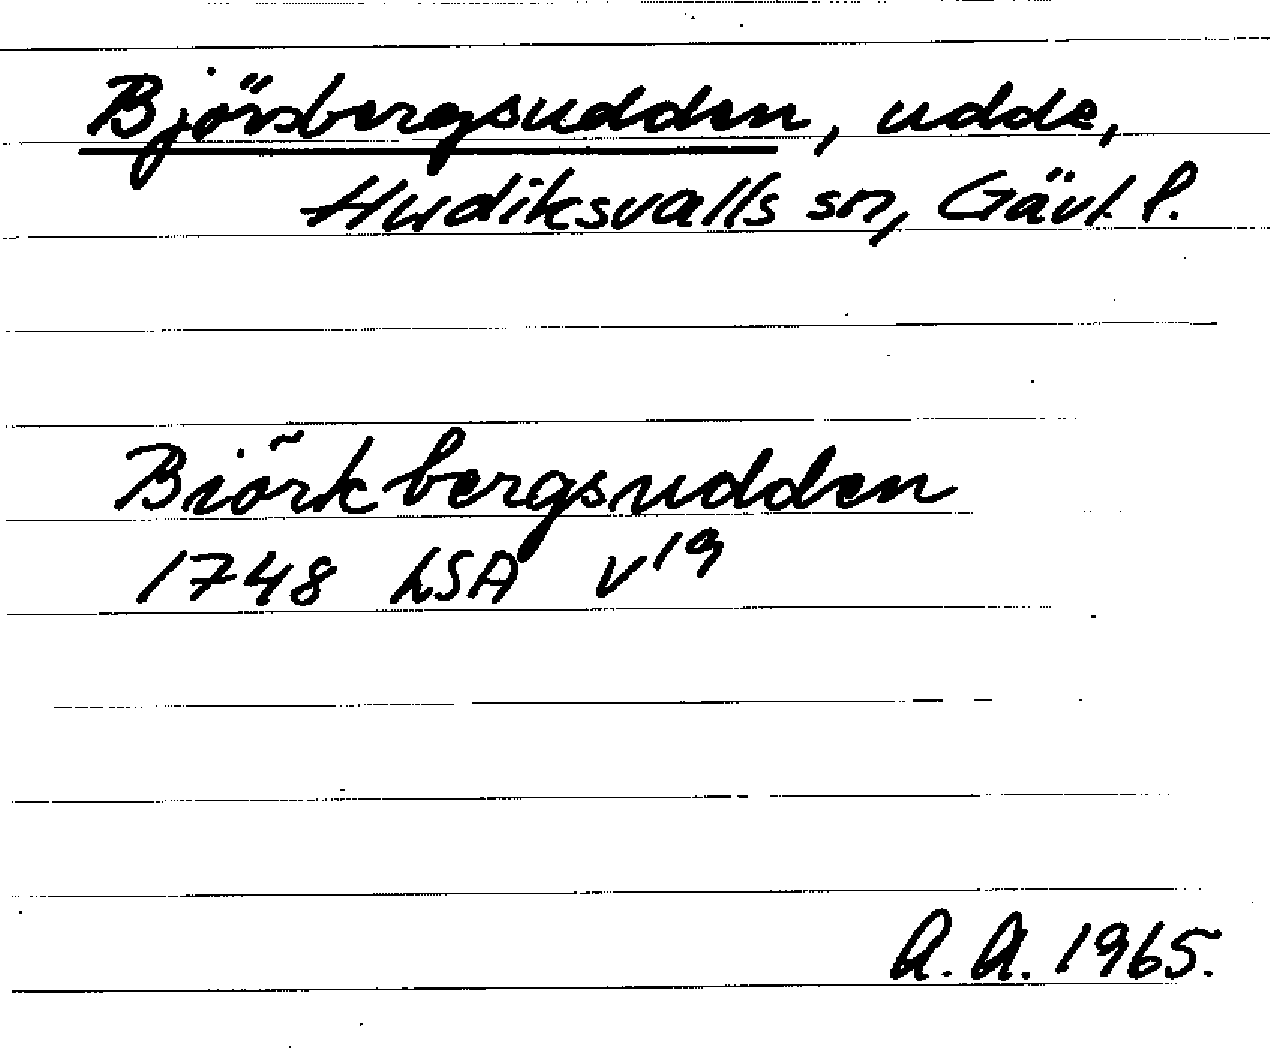 Björsbergsudden, udde,
Hudiksvalls sn, Gävl. l.
Biörkbergsudden
1748 LSA v19
A. A. 1965.